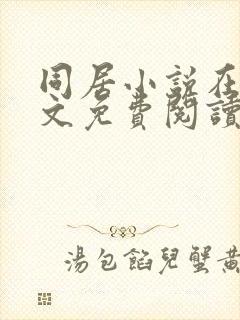 同居小说在
文免費閱讀
湯包餡兒蟹黃